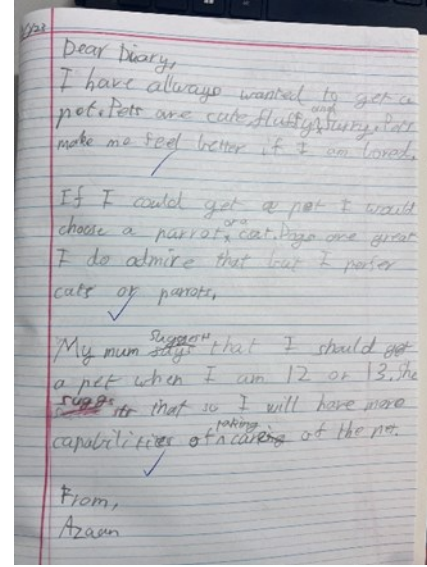 /23
Dear Diary,
I have allways wanted to get a
pet. Pets are cute, fluffy and furry. Pets
make me feel better if I am bored.
If I could get a pet I would
choose a parrot, or a cat. Dogs are great
I do admire that but I perfer
cats or parrots.
My mum suggests that I should get
a pet when I am 12 or 13. She
suggests that so I will have more
capabilities of taking care of the pet.
From,
Azaan